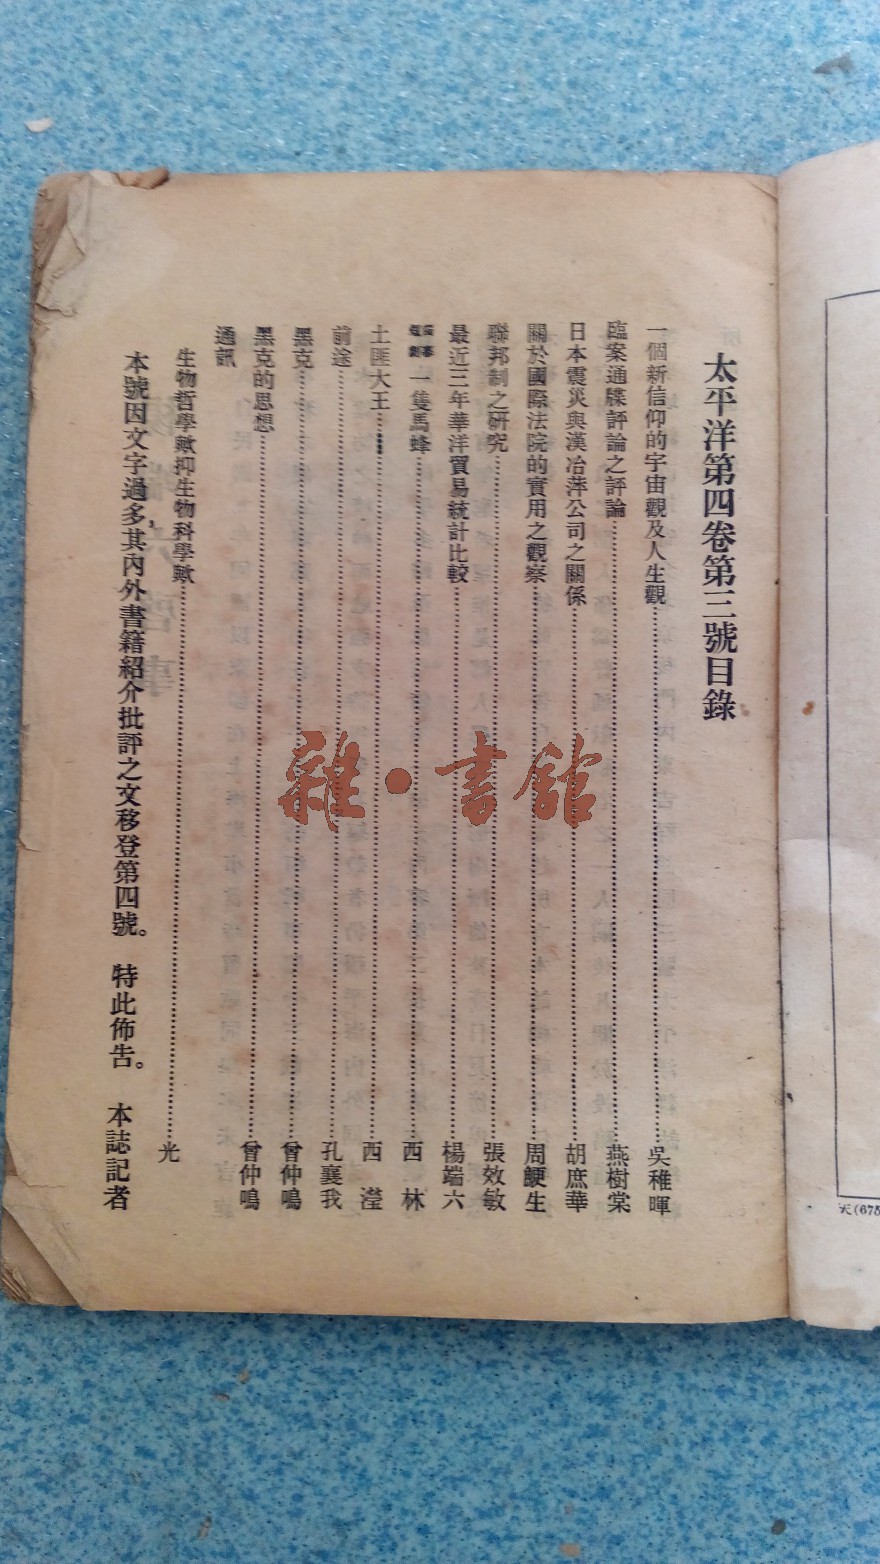 太平洋第四卷第三號目錄
一個新信仰的宇宙觀及人生觀……吳稚暉
臨案通牒評論之評論……燕樹棠
日本震災與漢冶萍公司之關係……胡庶華
關於國際法院的實用之觀察……周鯁生
聯邦制之研究……張效敏
最近三年華洋貿易統計比較……楊端六
獨幕趣劇 一隻馬蜂……西林
土匪大王……西瀅
前途……孔襄我
黑克……曾仲鳴
黑克的思想……曾仲鳴
通訊
生物哲學歟抑生物科學歟……光
本號因文字過多其內外書籍紹介批評之文移登第四號。 特此佈告。 本誌記者
雜·書館
天(675